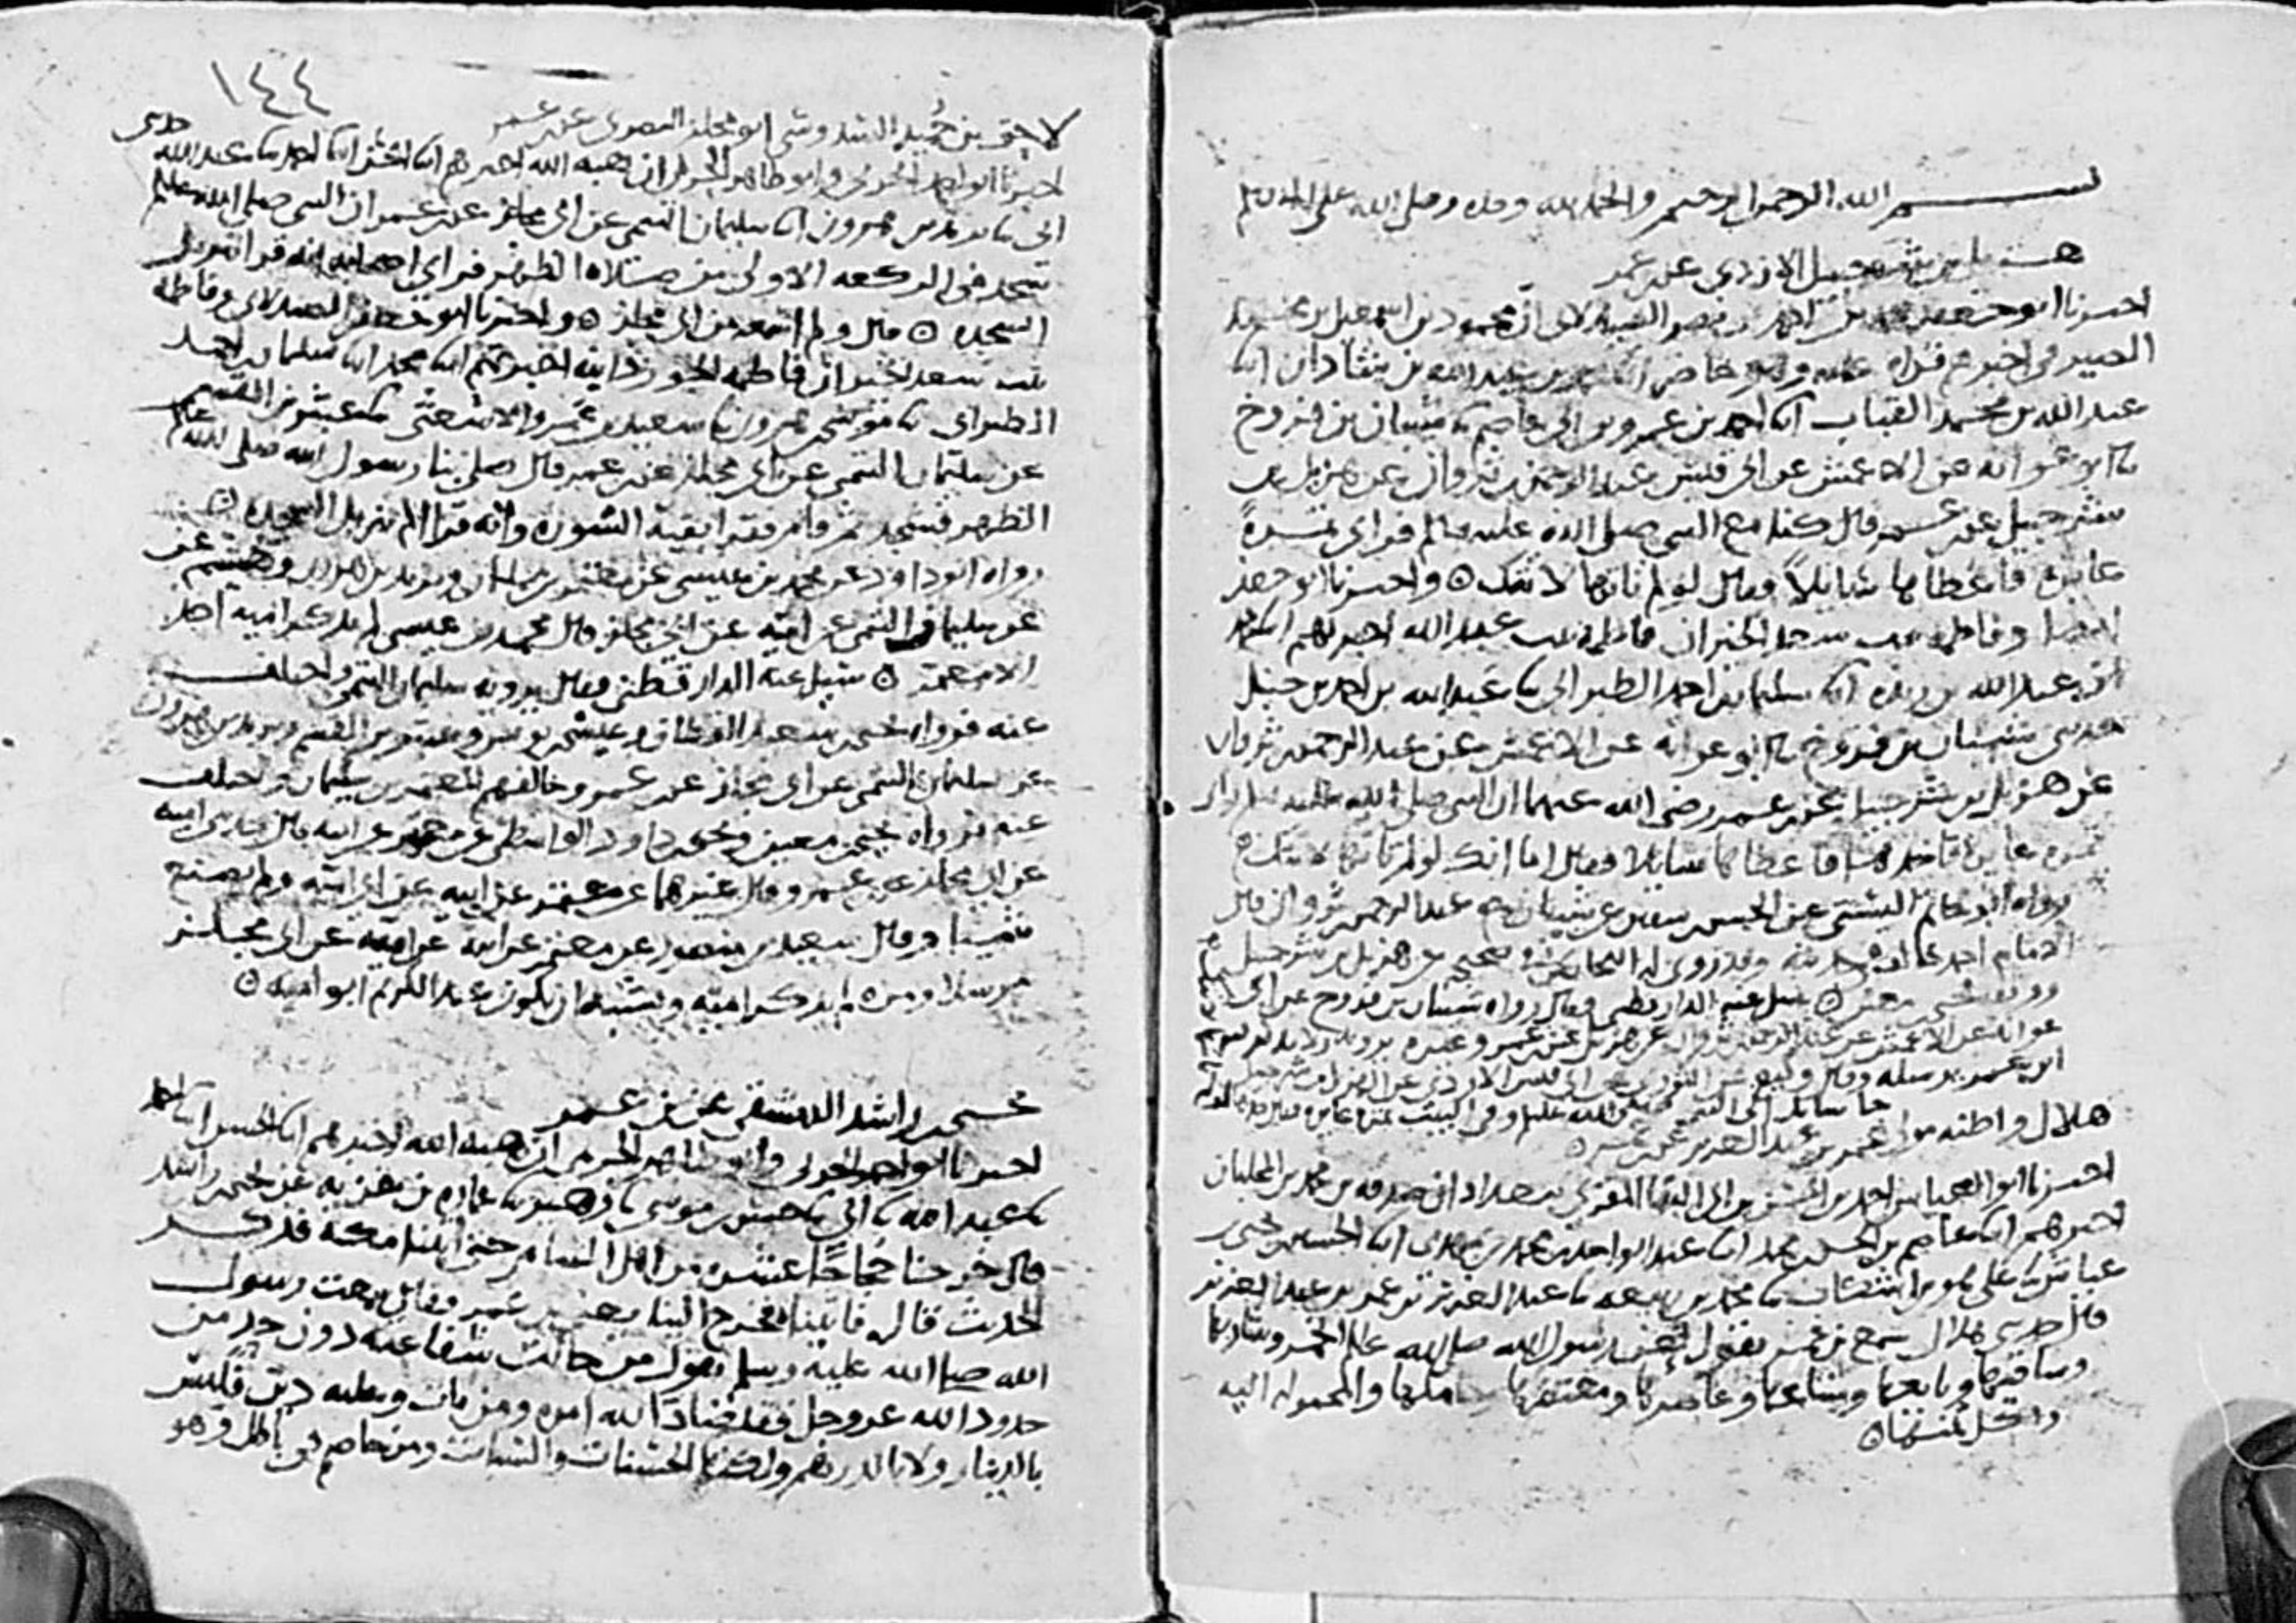 بسم الله الرحمن الرحيم والحمد لله وحده وصلى الله على
هزيل بن شرحبيل الازدي عن ابن عمر
اخبرنا ابو جعفر محمد بن احمد بن نصر الصيدلاني ان محمود بن اسمعيل بن محمد
الصيرفي اخبرهم قراه عليه وهو حاضر ابنا محمد بن عبد الله بن شاذان ابنا
عبد الله بن محمد القباب ابنا احمد بن عمرو بن ابي عاصم نا شيبان بن فروخ
نا ابو عوانه عن الاعمش عن ابي قيس عبد الرحمن بن ثروان عن هزيل بن
شرحبيل عن ابن عمر قال كنا مع النبي صلى الله عليه وسلم فراى تمرة
عايرة فاعطاها سايلاً وقال لو لم تاتها لاتتك ۞ واخبرنا ابو جعفر
ايضا وفاطمه بنت سعد الخير ان فاطمة بنت عبد الله اخبرتهم ابنا محمد
بن عبد الله بن ريذه ابنا سليمان بن احمد الطبراني نا عبد الله بن احمد بن حنبل
حدثني شيبان بن فروخ نا ابو عوانه عن الاعمش عن عبد الرحمن بن ثروان
عن هزيل بن شرحبيل عن ابن عمر رضي الله عنهما ان النبي صلى الله عليه وسلم راى
تمره عايرة فاخذها فاعطاها سايلا وقال اما انك لو لم تاتها لاتتك ۞
رواه ابو حاتم البستي عن الحسن بن سفين عن شيبان عبد الرحمن بن ثروان قال
الامام احمد وقد روى له البخاري في صحيحه عن هزيل بن شرحبيل
ووثقه يحيى بن معين ۞ سئل عنه الدارقطني وقال رواه شيبان بن فروخ عن ابي
عوانه عن الاعمش عن عبد الرحمن بن ثروان عن هزيل عن ابن عمر وغيره يرويه ولا يذكر
ابن عمر يرسله وقال وكيع عن الثوري عن ابي قيس الاودي عن الهزيل بن شرحبيل
جا سايل الى النبي صلى الله عليه وسلم وفي البيت تمرة عايرة فقال
هلال واظنه مولى عمر بن عبد العزيز عن ابن عمر ۞
اخبرنا ابو العباس احمد بن الحسن بن ابي البقا المقرئ ببغداد ان صدقه بن محمد بن المحلبان
اخبرهم ابنا عاصم بن الحسن بن محمد ابنا عبد الواحد بن محمد بن مهدي ابنا الحسين بن يحيى بن
عباس نا علي بن اشكاب نا محمد بن ربيعه نا عبد العزيز بن عمر بن عبد العزيز
قال حدثني هلال سمع ابن عمر يقول لعن رسول الله صلى الله عليه الخمر وشاربها
وساقيها وبايعها ومبتاعها وعاصرها ومعتصرها وحاملها والمحمولة اليه
واكل ثمنها ۞
١٤٤
لاحق بن حُميد السدوسي ابو مجلز البصري عن ابن عمر
اخبرنا ابو احمد الحربي وابو طاهر الحريمي ان هبة الله اخبرهم ابنا الحسن ابنا احمد نا عبد الله حدثني
ابي نا يزيد بن هرون ابنا سليمان التيمي عن ابي مجلز عن ابن عمر ان النبي صلى الله عليه وسلم
سجد في الركعه الاولى من صلاة الظهر فراى اصحابه انه قرا تنزيل
السجده ۞ قال ولم اسمعه من ابي مجلز ۞ واخبرنا ابو جعفر الصيدلاني وفاطمه
بنت سعد الخير ان فاطمه الجوزدانيه اخبرتهم ابنا محمد ابنا سليمان بن احمد
الطبراني نا موسى بن هرون نا سعيد بن عمرو الاشعثي نا عبثر بن القسم
عن سليمان التيمي عن ابي مجلز عن ابن عمر قال صلى بنا رسول الله صلى الله عليه وسلم
الظهر فسجد ثم قام فقرا بقية السورة وانه قرا الم تنزيل السجده ۞
رواه ابو داود عن محمد بن عيسى عن معتمر بن سليمان ويزيد بن هرون وهشيم عن
عن سليمان التيمي عن امية عن ابي مجلز قال محمد بن عيسى لم يذكر امية احد
الا معتمر ۞ سئل عنه الدارقطني وقال يرويه سليمان التيمي واختلف
عنه فرواه يحيى بن سعيد القطان وعيسى بن يونس وعبثر بن القسم ويزيد بن هرون
عن سليمان التيمي عن ابي مجلز عن ابن عمر وخالفهم المعتمر بن سليمان واختلف
عنه فرواه يحيى بن معين ومحمد بن داود الواسطي عن معتمر عن ابيه قال حدثني اميه
عن ابي مجلز عن ابن عمر وقال غيرهما عن معتمر عن ابيه عن ابي امية ولم يصنع
شيئا وقال سعيد بن منصور عن معتمر عن ابيه عن اميه عن ابي مجلز
مرسلا ومره لم يذكر امية ويشبه ان يكون عبد الكريم ابو اميه ۞
يحيى بن راشد الدمشقي عن ابن عمر
اخبرنا ابو احمد الحربي وابو طاهر الحريمي ان هبة الله اخبرهم ابنا الحسن ابنا احمد
نا عبد الله نا ابي نا حسن بن موسى نا زهير نا عمارة بن غزية عن يحيى بن راشد
قال خرجنا حُجاجًا عشرة من اهل الشام حتى اتينا مكة فذكر
الحديث قال فاتيناه فخرج الينا يعني ابن عمر فقال سمعت رسول
الله صلى الله عليه وسلم يقول من حالت شفاعته دون حد من
حدود الله عز وجل فقد ضادّ الله امره ومن مات وعليه دين فليس
بالدينار ولا بالدرهم ولكنها الحسنات والسيات ومن خاصم في باطل وهو